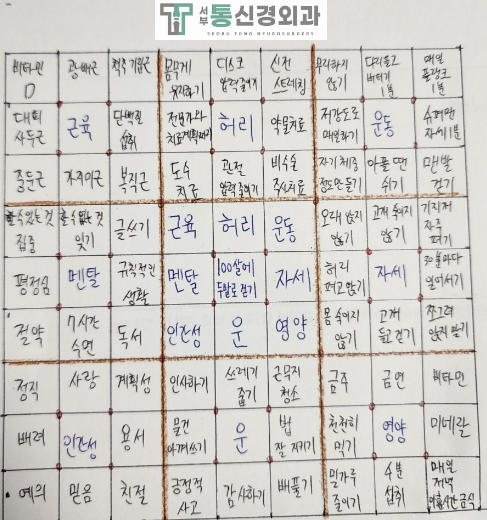 서부 통신경외과
SEOBU TONG NEUROSURGERY
비타민 D 광배근 척추기립근 몸무게 유지하기 디스크 압력 줄이기 신전 스트레칭 무리하지 않기 다리 들고 버티기 1분 매일 플랭크 1분
대퇴 사두근 근육 단백질 섭취 전문가와 치료계획 허리 약물치료 저강도로 매일하기 운동 슈퍼맨 자세 1분
중둔근 복직근 도수 치료 관절 압력 줄이기 비수술 주사치료 자기 체중 정도 만들기 아플 땐 쉬기 맨발 걷기
할 수 있는 것 집중 할 수 없는 것 잊기 글쓰기 근육 허리 운동 오래 앉지 않기 고개 숙이지 않기 기지개 자주 펴기
평정심 멘탈 규칙적인 생활 멘탈 100살에 두발로 걷기 자세 허리 펴고 앉기 자세 30분마다 일어서기
절약 7시간 수면 독서 인간성 운 영양 몸 숙이지 않기 고개 들고 걷기 쪼그려 앉지 말기
정직 사랑 계획성 인사하기 쓰레기 줍기 근무지 청소 금주 금연 비타민
배려 인간성 용서 물건 아껴쓰기 운 법 잘 지키기 천천히 먹기 영양 미네랄
예의 믿음 친절 긍정적 사고 감사하기 베풀기 밀가루 줄이기 수분 섭취 매일 저녁 금식